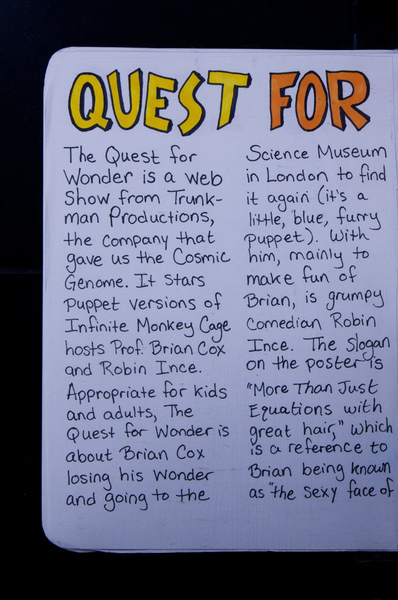 QUEST FOR
The Quest for
Wonder is a web
Show from Trunk-
man Productions,
the company that
gave us the Cosmic
Genome. It stars
puppet versions of
Infinite Monkey Cage
hosts Prof. Brian Cox
and Robin Ince.
Appropriate for kids
and adults, The
Quest for Wonder is
about Brian Cox
losing his wonder
and going to the
Science Museum
in London to find
it again (it's a
little, blue, furry
puppet). With
him, mainly to
make fun of
Brian, is grumpy
comedian Robin
Ince. The slogan
on the poster is
"More Than Just
Equations with
great hair," which
is a reference to
Brian being known
as "the sexy face of